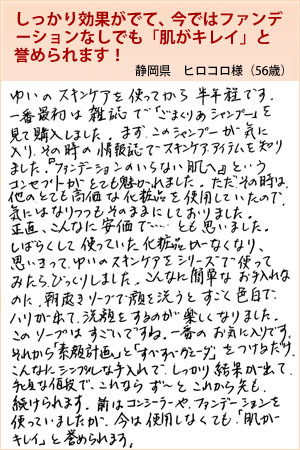 しっかり効果がでて、今ではファンデ
ーションなしでも「肌がキレイ」と
誉められます！
静岡県　ヒロコロ様（56歳）
ゆいのスキンケアを使ってから半年程です。
一番最初は雑誌で「ごまくりあシャンプー」を
見て購入しました。まず、このシャンプーが気に
入り、その時の情報誌でスキンケアアイテムを知り
ました。『ファンデーションのいらない肌へ』という
コンセプトがとても魅かれました。ただその時は、
他のとても高価な化粧品を使用していたので、
気にはなりつつもそのままにしておりました。
正直、こんなに安価で……とも思いました。
しばらくして使っていた化粧品がなくなり、
思いきって、ゆいのスキンケアをシリーズで使って
みたら、びっくりしました。こんなに簡単なお手入れな
のに、朝起きソープで顔を洗うとすごく色白で
ハリが出て、洗顔をするのが楽しくなりました。
このソープはすごいですね。一番のお気に入りです。
それから「素顔計画」と「すいすいヴェーダ」をつけるだけ。
こんなにシンプルな手入れで、しっかり結果が出て、
手頃な値段で、これならずーとこれから先も
続けられます。前はコンシーラーや、ファンデーションを
使っていましたが、今は使用しなくても「肌が
キレイ」と誉められます。